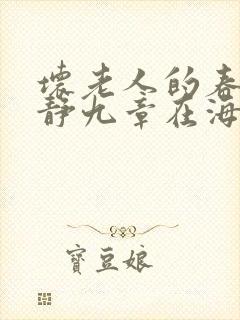 壞老人的春
靜九章在海
寶豆娘